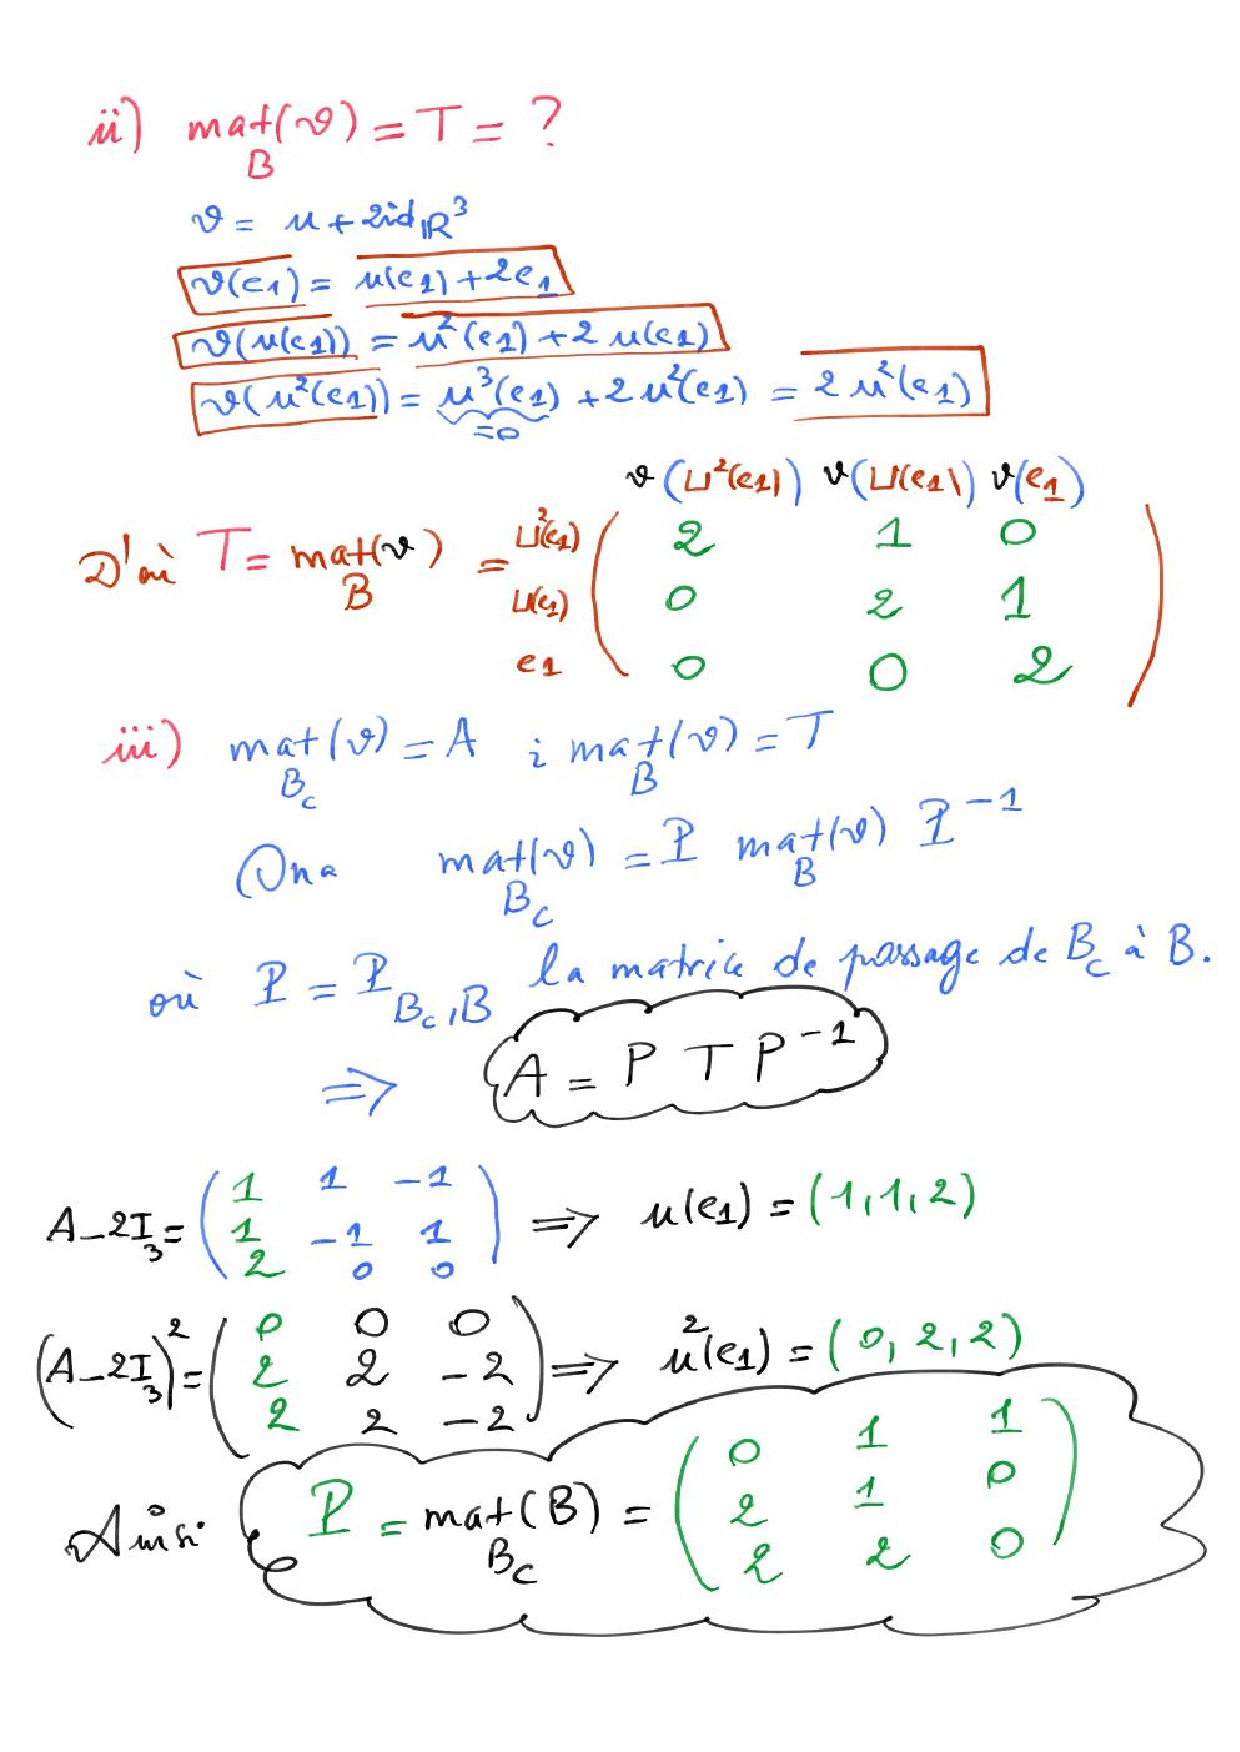 ii) mat_B(v) = T = ?
v = u + 2id_ℝ³
v(e₁) = u(e₁) + 2e₁
v(u(e₁)) = u²(e₁) + 2u(e₁)
v(u²(e₁)) = u³(e₁) + 2u²(e₁) = 2u²(e₁)
=0
v(u²(e₁)) v(u(e₁)) v(e₁)
D'où T = mat_B(v) =
u²(e₁) ( 2 1 0 )
u(e₁) ( 0 2 1 )
e₁ ( 0 0 2 )
iii) mat_Bc(v) = A ; mat_B(v) = T
On a mat_Bc(v) = P mat_B(v) P⁻¹
où P = P_Bc,B la matrice de passage de Bc à B.
⇒ A = P T P⁻¹
A - 2I₃ = ( 1 1 -1 ; 1 -1 1 ; 2 0 0 ) ⇒ u(e₁) = (1,1,2)
(A - 2I₃)² = ( 0 0 0 ; 2 2 -2 ; 2 2 -2 ) ⇒ u²(e₁) = (0,2,2)
Ainsi P = mat_Bc(B) = ( 0 1 1 ; 2 1 0 ; 2 2 0 )